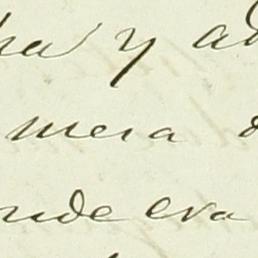 ha y ad
mera d
nde era